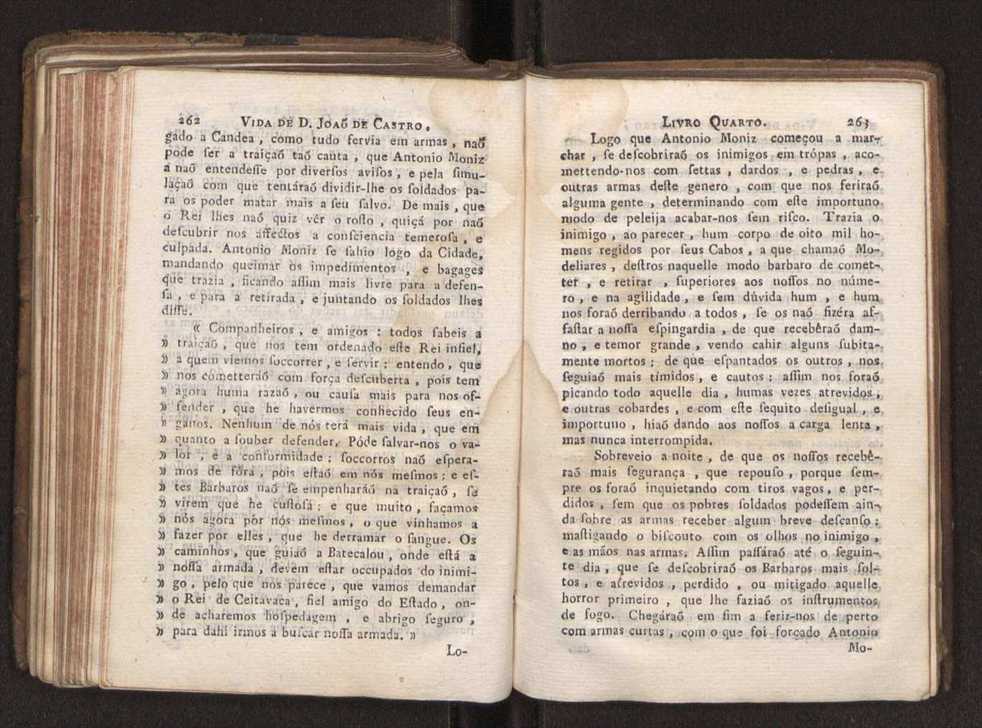 262 VIDA DE D. JOAÕ DE CASTRO,
gado a Candea , como tudo fervia em armas , naõ
pode ſer a traiçaõ taõ cauta , que Antonio Moniz
a naõ entendeſſe por diverſos aviſos , e pela ſimu-
laçaõ com que tentáraõ dividir-lhe os ſoldados pa-
ra os poder matar mais a ſeu ſalvo. De mais , que
o Rei lhes naõ quiz vêr o roſto , quiçá por naõ
deſcubrir nos affectos a conſciencia temeroſa , e
culpada. Antonio Moniz ſe ſahio logo da Cidade,
mandando queimar os impedimentos , e bagages
que trazia , ficando aſſim mais livre para a defen-
ſa , e para a retirada , e juntando os ſoldados lhes
diſſe.
« Companheiros , e amigos : todos ſabeis a
» traiçaõ , que nos tem ordenado eſte Rei infiel,
» a quem viemos ſoccorrer , e ſervir : entendo , que
» nos cometteráõ com força deſcuberta , pois tem
» agora huma razaõ , ou cauſa mais para nos of-
» fender , que he havermos conhecido ſeus en-
» ganos. Nenhum de nós terá mais vida , que em
» quanto a ſouber defender. Póde ſalvar-nos o va-
» lor , e a conformidade : ſoccorros naõ eſpera-
» mos de fóra , pois eſtaõ em nós meſmos ; e eſ-
» tes Barbaros naõ ſe empenharáõ na traiçaõ , ſe
» virem que he cuſtoſa : e que muito , façamos
» nós agora por nós meſmos , o que vinhamos a
» fazer por elles , que he derramar o ſangue. Os
» caminhos , que guiaõ a Batecalou , onde eſtá a
» noſſa armada , devem eſtar occupados do inimi-
» go , pelo que nos parece , que vamos demandar
» o Rei de Ceitavaca, fiel amigo do Eſtado , on-
» de acharemos hoſpedagem , e abrigo ſeguro ,
» para dahi irmos a buſcar noſſa armada. »
Lo-
LIVRO QUARTO. 263
Logo que Antonio Moniz começou a mar-
char , ſe deſcobriraõ os inimigos em trópas , aco-
mettendo-nos com ſettas , dardos , e pedras , e
outras armas deſte genero , com que nos feriraõ
alguma gente , determinando com eſte importuno
modo de peleija acabar-nos ſem riſco. Trazia o
inimigo , ao parecer , hum corpo de oito mil ho-
mens regidos por ſeus Cabos , a que chamaõ Mo-
deliares , deſtros naquelle modo barbaro de comet-
ter , e retirar , ſuperiores aos noſſos no núme-
ro , e na agilidade , e ſem dúvida hum , e hum
nos foraõ derribando a todos , ſe os naõ fizéra af-
faſtar a noſſa eſpingardia , de que recebêraõ dam-
no , e temor grande , vendo cahir alguns ſubita-
mente mortos ; de que eſpantados os outros , nos
ſeguiaõ mais timidos , e cautos ; aſſim nos foraõ
picando todo aquelle dia , humas vezes atrevidos ,
e outras cobardes , e com eſte ſequito deſigual , e
importuno , hiaõ dando aos noſſos a carga lenta ,
mas nunca interrompida.
Sobreveio a noite , de que os noſſos recebê-
raõ mais ſegurança , que repouſo , porque ſem-
pre os foraõ inquietando com tiros vagos , e per-
didos , ſem que os pobres ſoldados podeſſem ain-
da ſobre as armas receber algum breve deſcanſo ;
maſtigando o biſcouto com os olhos no inimigo ,
e as mãos nas armas. Aſſim paſſáraõ até o ſeguin-
te dia , que ſe deſcobriraõ os Barbaros mais ſol-
tos , e atrevidos , perdido , ou mitigado aquelle
horror primeiro , que lhe faziaõ os inſtrumentos
de fogo. Chegáraõ em fim a ferir-nos de perto
com armas curtas , com o que foi forçado Antonio
Mo-